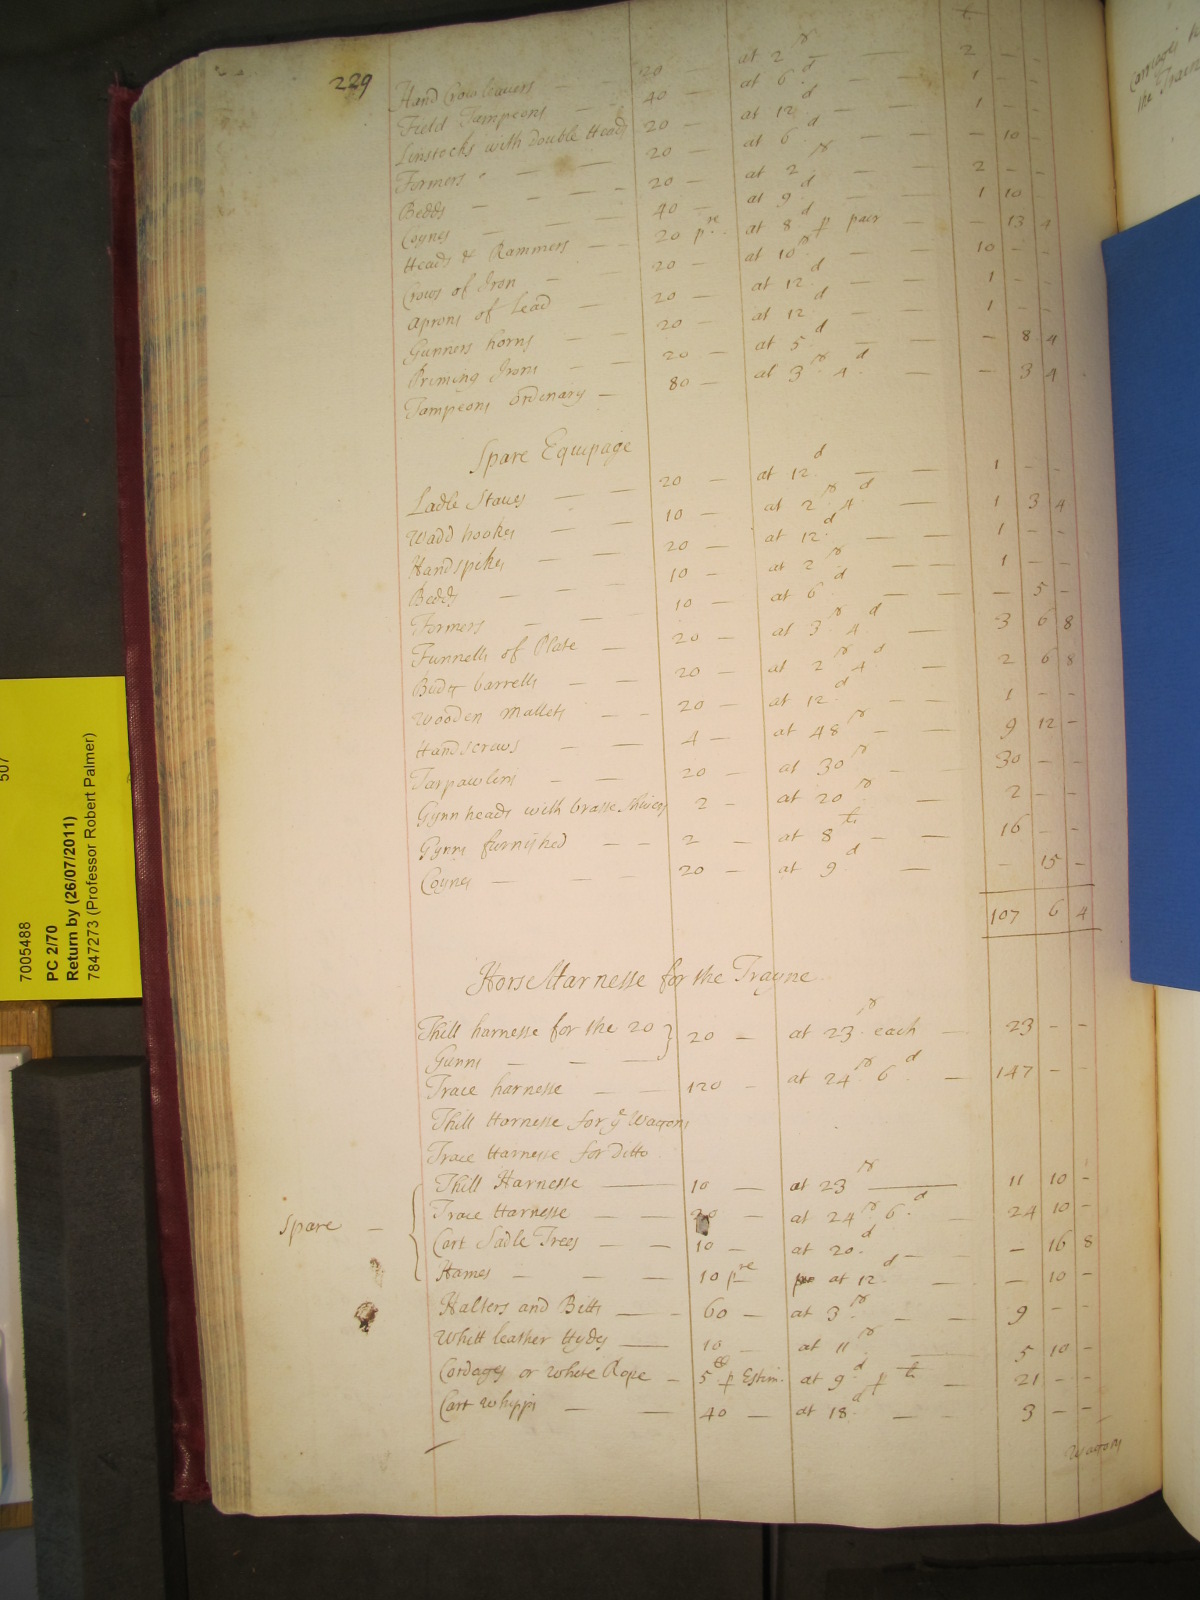 229
li
Hand Crow leavers — 20 at 2 s — — 2 - -
Field Tampeons - - 40 — at 6 d — — 1 - -
Linstocks with Double Heads 20 — at 12 d — — 1 - -
Formers - — — 20 — at 6 d — — - 10 -
Bedds — — - 20 — at 2 s — — 2 - -
Coynes — — — 40 — at 9 d — — 1 10 -
Heads & Rammers — - 20 pre. at 8 d p pair — - 13 4
Crows of Iron — 20 — at 10 s — 10 - -
Aprons of Lead — 20 — at 12 d — — 1 - -
Gunners horns — - 20 — at 12 d — — 1 - -
Priming Irons — - 20 — at 5 d — — - 8 4
Tampeons ordinary — 80 — at 3 s 4 d — - 3 4
Spare Equipage
Ladle Staves — — 20 — at 12 d — — 1 - -
Wadd hookes — — 10 — at 2 s 4 d — 1 3 4
Handspikes — — 20 — at 12 d — — 1 - -
Bedds — — — 10 — at 2 s — — 1 - -
Formers — — 10 — at 6 d — — - 5 -
Funnells of Plate — 20 — at 3 s 4 d — 3 6 8
Budg barrells — — 20 — at 2 s 4 d — 2 6 8
Wooden Mallets — - 20 — at 12 d — — 1 - -
Handscrews — — 4 — at 48 s — — 9 12 -
Tarpawlins — — 20 — at 30 s — — 30 - -
Gynn heads with brasse Shivers 2 - at 20 s — 2 - -
Gynns furnished — - 2 — at 8 li — — 16 - -
Coynes — — — 20 — at 9 d — - 15 -
107 6 4
Horse Harnesse for the Trayne
Thill harnesse for the 20 } 20 — at 23 s each — 23 - -
Gunns — — —
Trace harnesse — — 120 — at 24 s 6 d — 147 - -
Thill Harnesse for ye Wagons
Trace Harnesse for ditto
Thill Harnesse — 10 — at 23 s — 11 10 -
Spare — Trace Harnesse — — 20 — at 24 s 6 d — 24 10 -
Cart Sadle Trees — — 10 — at 20 d — — - 16 8
Hames — — — 10 pre at 12 d — — 10 -
Halters and Bitts — - 60 — at 3 s — — 9 - -
Whitt leather Hydes — 10 — at 11 s — 5 10 -
Cordages or White Rope — 5 p Estim. at 9 d p li — 21 - -
Cart Whipps — — 40 — at 18 d — — 3 - -
Wagons
Carriages
the Train
507
7005488
PC 2/70
Return by (26/07/2011)
7847273 (Professor Robert Palmer)